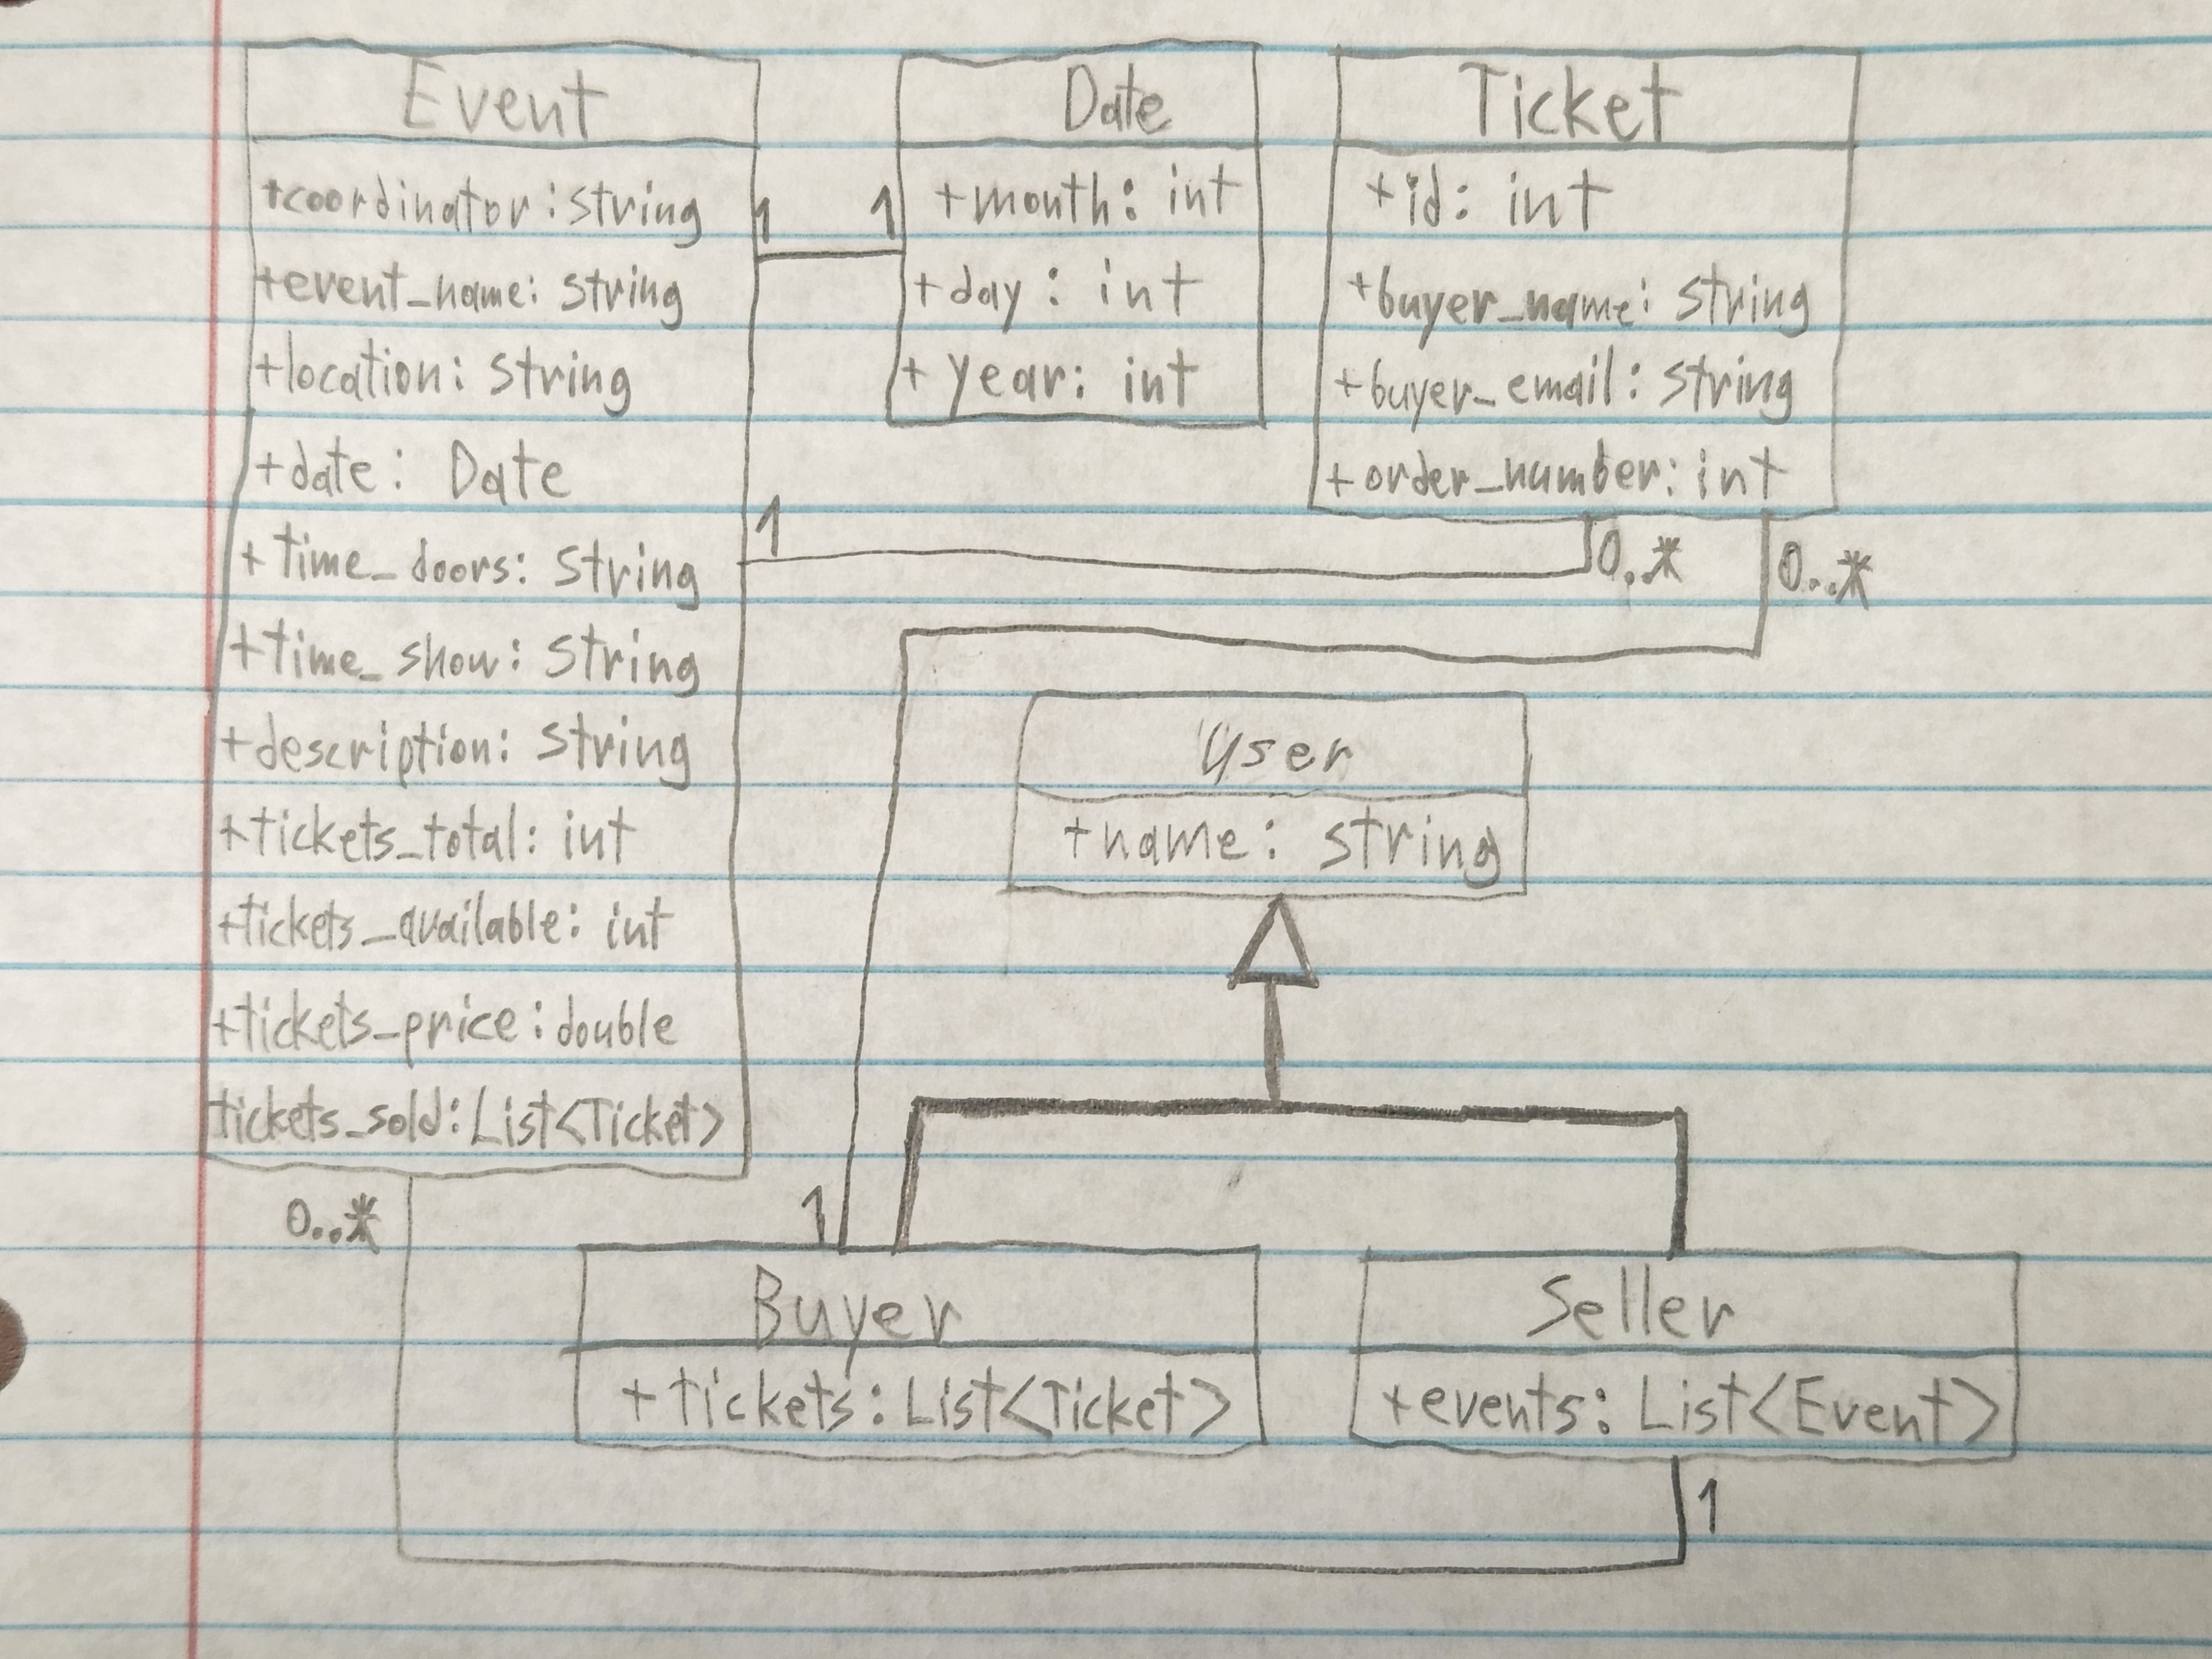 Event
+coordinator: string
+event_name: string
+location: string
+date: Date
+time_doors: string
+time_show: string
+description: string
+tickets_total: int
+tickets_available: int
+tickets_price: double
tickets_sold: List<Ticket>
1
1
Date
+month: int
+day: int
+year: int
Ticket
+id: int
+buyer_name: string
+buyer_email: string
+order_number: int
1
0..*
0..*
User
+name: string
0..*
1
Buyer
+tickets: List<Ticket>
Seller
+events: List<Event>
1